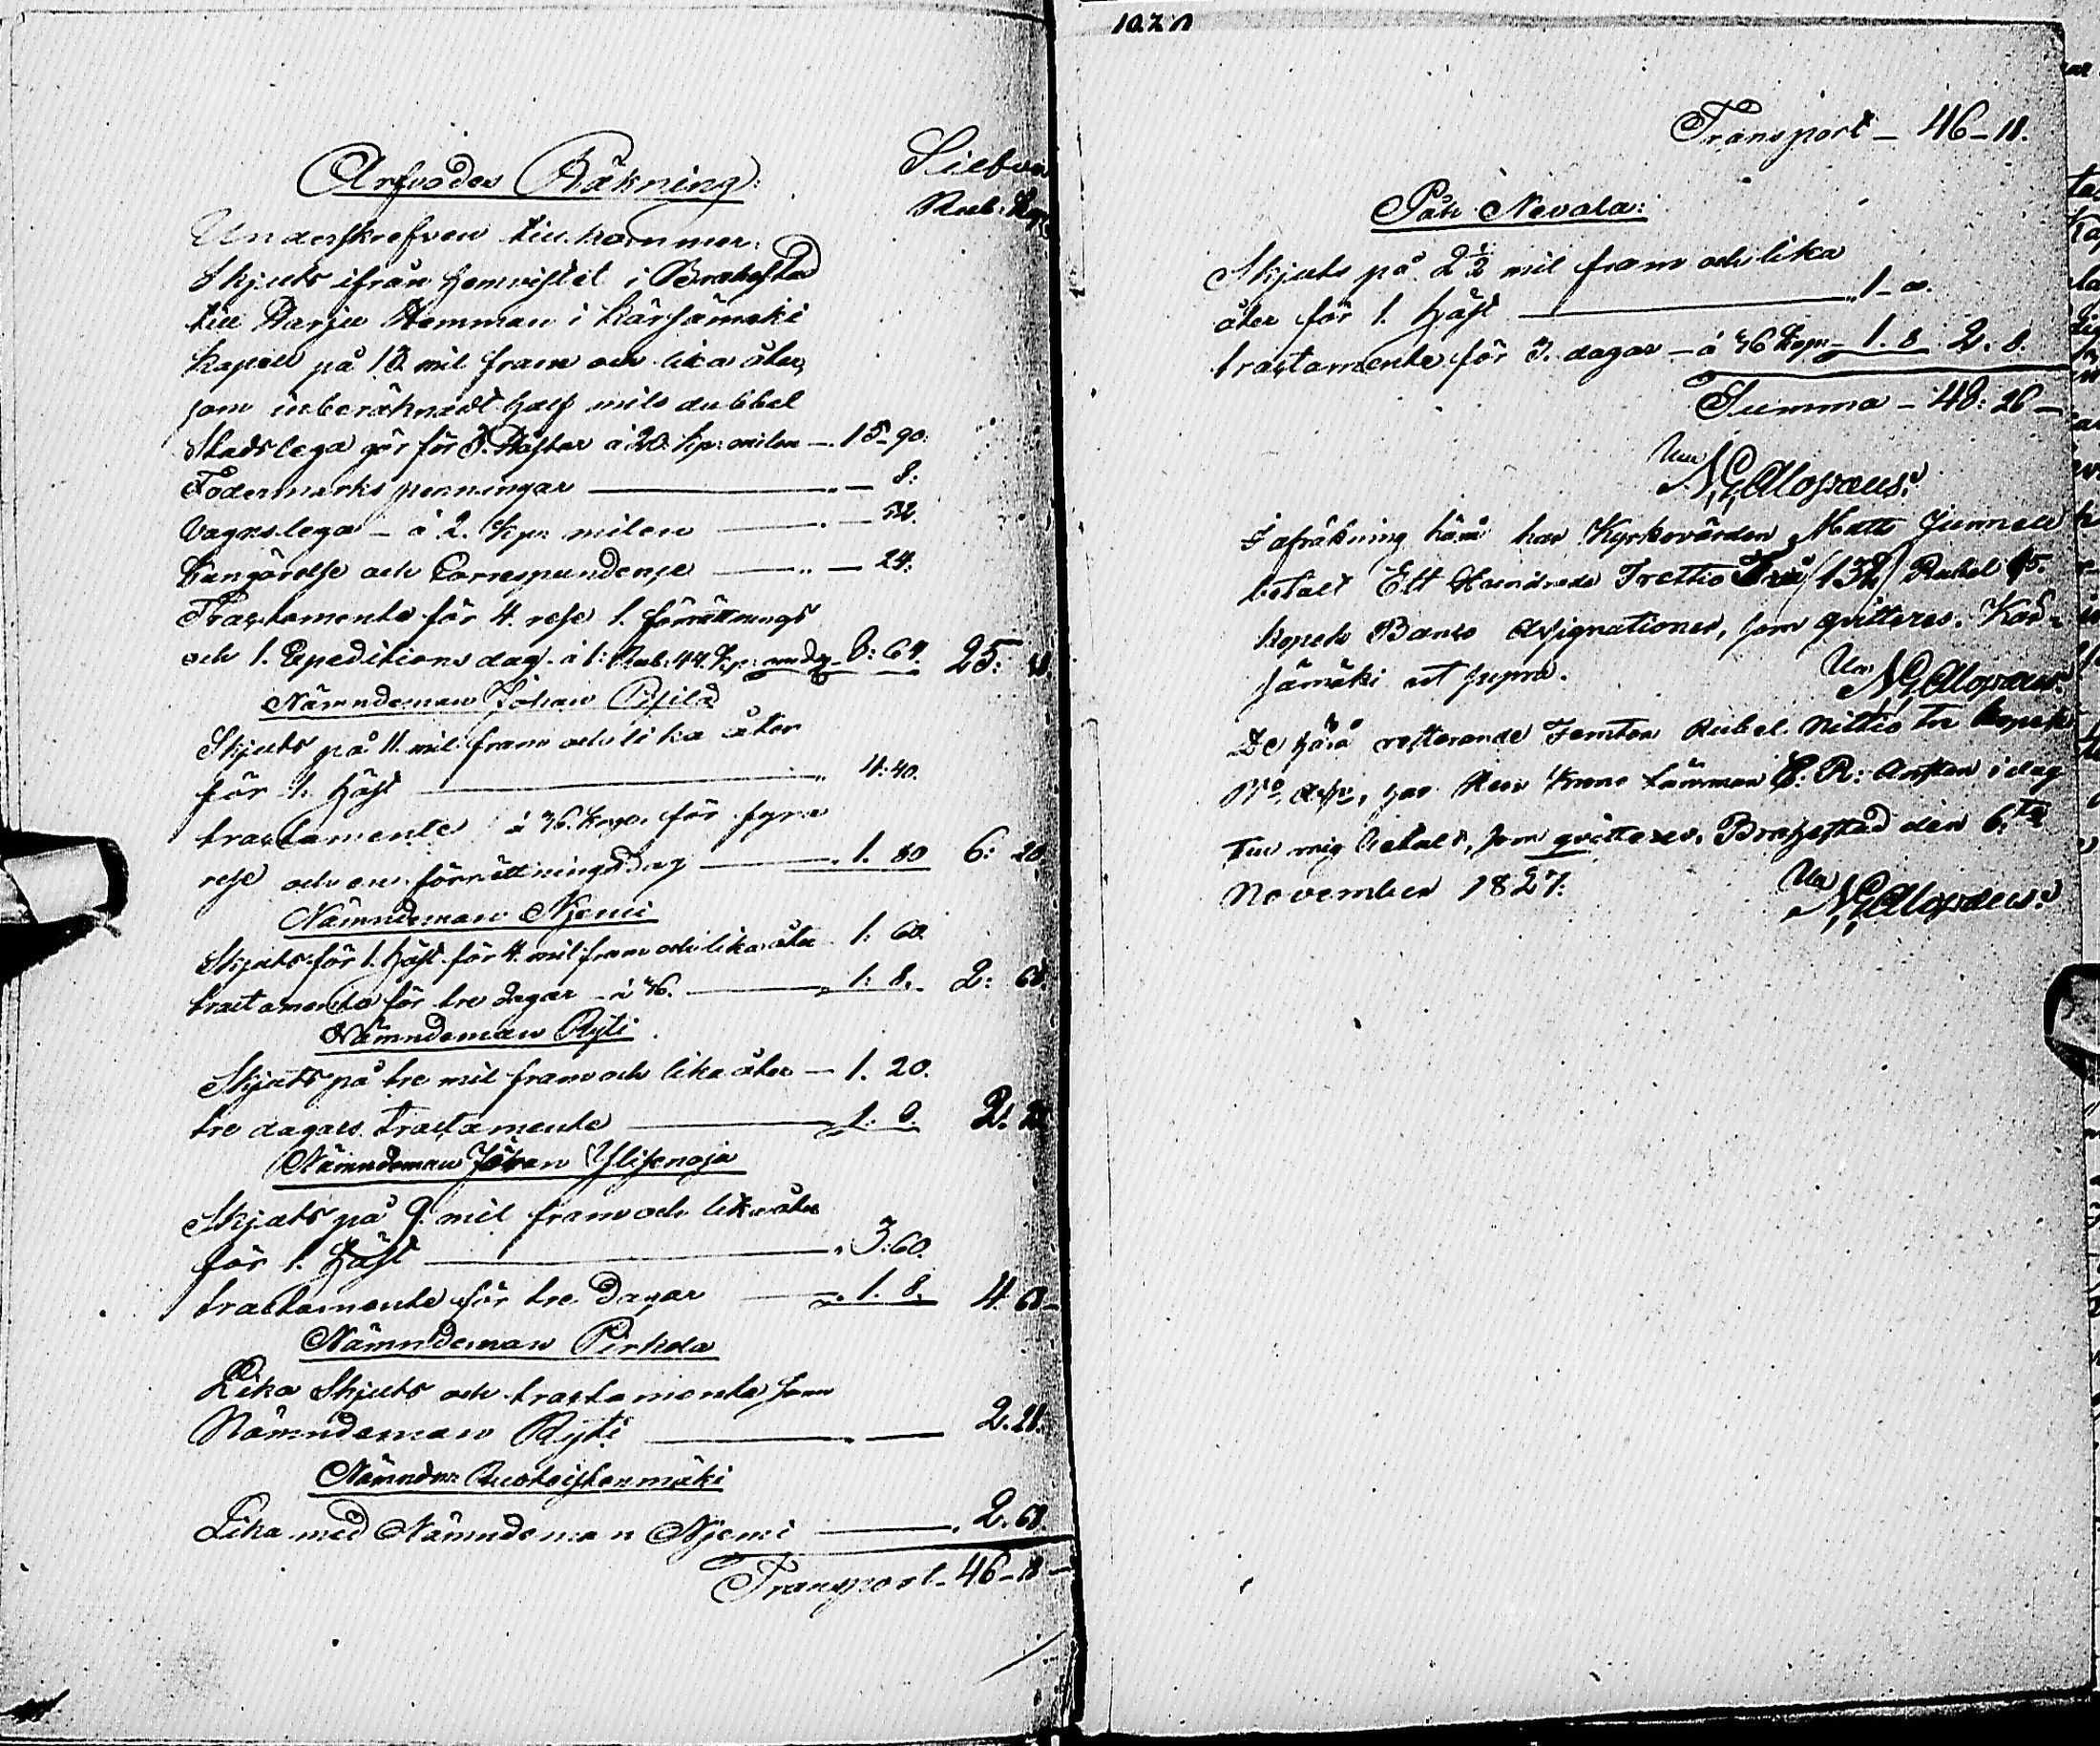 Arfvodes Räkning:
Silfver
Rub: Kop:
Underskrefven tillkommer.
Skjuts ifrån hemvistet i Brahestad
till Harju Hemman i Kärsämäki
Kapell på 13 mil fram och lika åter,
som inberäknadt half mils dubbel
Stadslega gör för 3. Hästar à 20. kp: milen — 15-90:
Fodermarks penningar — 8:
Vagnslega — à 2. kp: milen — 52.
Kungörelse och Correspondence — 24:
Tractamente för 4. rese 1. förrättnings
och 1. Expeditions dag. à 1: Rub: 44. Kp: om dag 8: 64. 25:
Nämndeman Johan
Skjuts på 11. mil fram och lika åter
för 1. häst — 4:40.
tractamente à 36. Kop: för fyra
rese och en förrättningsdag — 1. 80 6: 20
Nämndeman Njemi
Skjuts för 1. häst för 4. mil fram och lika åter 1: 60.
tractamente för tre dagar — à 36. — 1: 8. 2: 68.
Nämndeman Ryti
Skjuts på tre mil fram och lika åter — 1. 20.
tre dagars tractamente — 1. 8. 2. 28
Nämndeman Johan Ylipenoja
Skjuts på 9. mil fram och lika åter
för 1. häst — 3:60.
tractamente för tre dagar — 1. 8. 4. 68
Nämndeman Pirkola
Lika Skjuts och tractamente som
Nämndeman Ryti — 2. 28.
Nämndm:
Lika med Nämndeman Njemi — 2. 68.
Transport — 46-18
Transport — 46-18.
Päh Nevala:
Skjuts på 2 1/2 mil fram och lika
åter för 1. häst — 1-00.
tractamente för 3. dagar — à 36 Kop: 1. 8 2. 8.
Summa — 48: 26 —
N G Alopæus.
I afräkning härå har Kyrkovärden Matts Junnell
betalt Ett Hundrade Trettio Två /132/ Rubel 15.
kopek Banco Assignationer, som qvitteras. Kär-
sämäki ut supra.
N G Alopæus.
De härå resterande Femton Rubel Nittio tre kopek
B:o Ass:r, har Herr Krono Länsman C: R: i dag
till mig betalt, som qvitteras. Brahestad den 6:te
November 1827.
N G Alopæus.